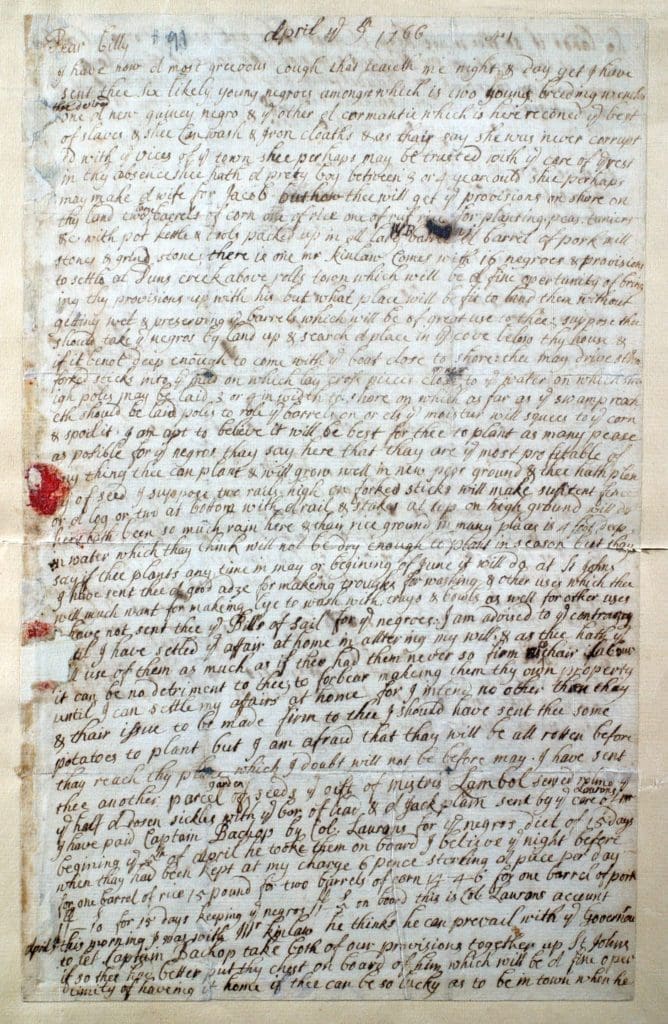 April ye 9th 1766
Dear Billy
I have now A most grievous cough that teaseth me night & day yet I have
sent thee six likely young negroes among which is two young breeding wenches
one A new guiney negro & ye other A cormantie which is here reconed ye best
of slaves & shee Can wash & Iron cloaths & as thair say she was never corrupt
ed with ye vices of ye town shee perhaps may be trusted with ye care of ye rest
in thy absence shee hath A pretty boy between 3 or 4 year outs shee perhaps
may make A wife for Jacob but how thee will get ye provisions on shore on
thy land two barrels of corn one of rice one of for planting peas turniers
&c with pot ketle & trols packed up in barrel of pork mill
stones & grind stone there is one mr kinlaw Comes with 16 negroes & provisions
to settle at Duns creek above rolls town which will be A fine opertunity of bring
ing thy provisions up with his but what place will be fit to land them without
getting wet & preserving ye barrels which will be of great use to thee suppose thee
should take ye negros ty land up & search A place in ye cove below thy house &
if it be not deep enough to come with ye boat close to shore thee may drive
forked sticks into ye mud on which lay cros pieces close to ye water on which
poles may be laid 3 or 4 in width to shore on which as far as ye swamp reach
eth should be laid poles to role ye barrels on or els ye moistur will squees to ye corn
& spoil it I am apt to believe it will be best for thee to plant as many pease
as posible for ye negros thay say here that thay are ye most profitable of
any thing thee can plant & will grow well in new piny ground & thee hath plen
ty of seed I suppose two rails high on forked sticks will make sufitent fence
or A log or two as bottom with A rail & stakes at top on hegh ground will do
here hath been so much rain here & thay rice ground in many places is 4 foot deep
in water which thay think will not be dry enough to plant in season but thay
say if thee plants any time in may or begining of June it will do at St Johns
I have sent thee A good adze for making troughs for washing & other uses which thee
will much want for making lye to wash with trays & bowls as well for other uses
I have not sent thee ye Bille of sail for ye negroes I am advised to ye contragry
til I have settled ye affair at home in altering my will & as thee hath ye
use of them as much as if thee had them never so firm & thair labour
it can be no detriment to thee to forbear makeing them thy own property
until I can settle my affairs at home for I intend no other than thay
& thair issue to be made firm to thee I should have sent thee some
potatoes to plant but I am afraid that thay will be all rotten before
thay reach thy place which I doubt will not be before may I have sent
thee another parcel garden seeds ye gift of mistris Lambol sewed
ye half A dosen sickles with ye box of & A Jack plain sent by ye care of
I have paid Captain Bachop by Col. Laurans for ye negros diet of 15 days
begining ye of April he tooke them on board I believe ye night before
when thay had been kept at my charge 6 pence sterling A piece per day
for one barrel of rice 15 pound for two barrels of corn 14-4-6 for one barrel of pork
10 for 15 days keeping ye negros on board this is Col. Laurans account
April this morning I was with Mr kinlaw he thinks he can prevail with ye Governour
to let Captain Bachop take both of our provisions together up St Johns
if so thee had better put thy chest on board of him which will be A fine oper
tunity of haveing it home if thee can be so lucky as to be in town when he